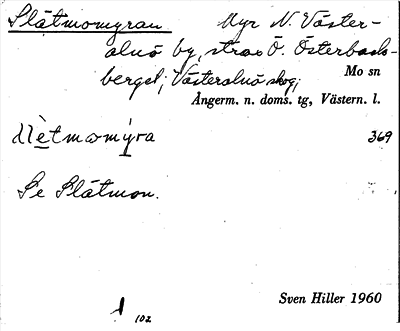 Slåtmomyran Myr N. Väster-
alnö by, strax Ö. Österbacks-
berget; Västeralnö skog;
Mo sn
Ångerm. n. doms. tg, Västern. l.
369
Se Slåtmon.
Sven Hiller 1960
102